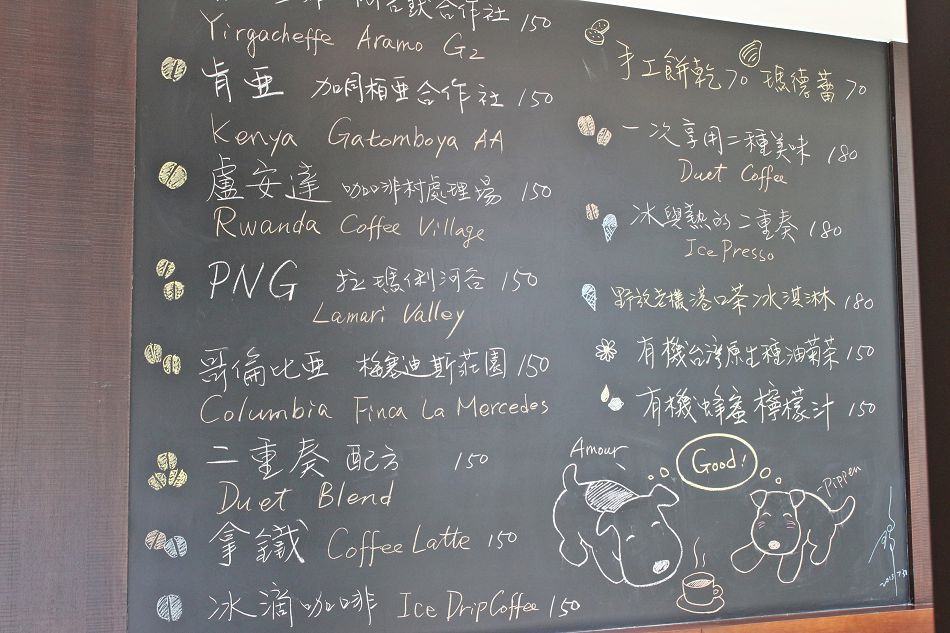 合作社 150
Yirgacheffe Aramo G2
肯亞 加同柏亞合作社 150
Kenya Gatomboya AA
盧安達 咖啡村處理場 150
Rwanda Coffee Village
PNG 拉瑪俐河谷 150
Lamari Valley
哥倫比亞 梅賽迪斯莊園 150
Columbia Finca La Mercedes
二重奏 配方 150
Duet Blend
拿鐵 Coffee Latte 150
冰滴咖啡 Ice Drip Coffee 150
手工餅乾 70 瑪德蕾 70
一次享用二種美味 180
Duet Coffee
冰與熱的二重奏 180
Ice Presso
野放老欉港口茶冰淇淋 180
有機台灣原生種油菊茶 150
有機蜂蜜檸檬汁 150
Amour
Good!
Pippen